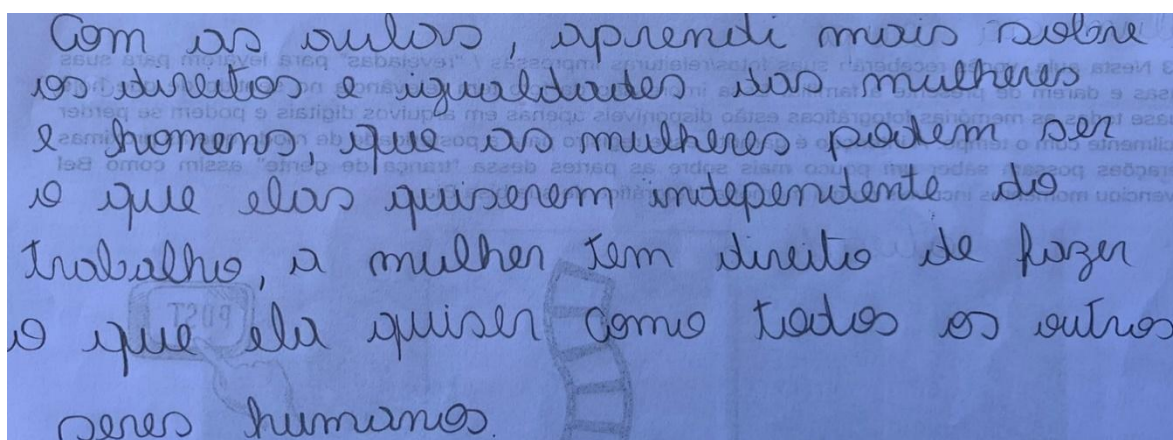 Com as aulas, aprendi mais sobre
os direitos e igualdades das mulheres
e homens, que as mulheres podem ser
o que elas quiserem independente do
trabalho, a mulher tem direito de fazer
o que ela quiser como todos os outros
seres humanos.